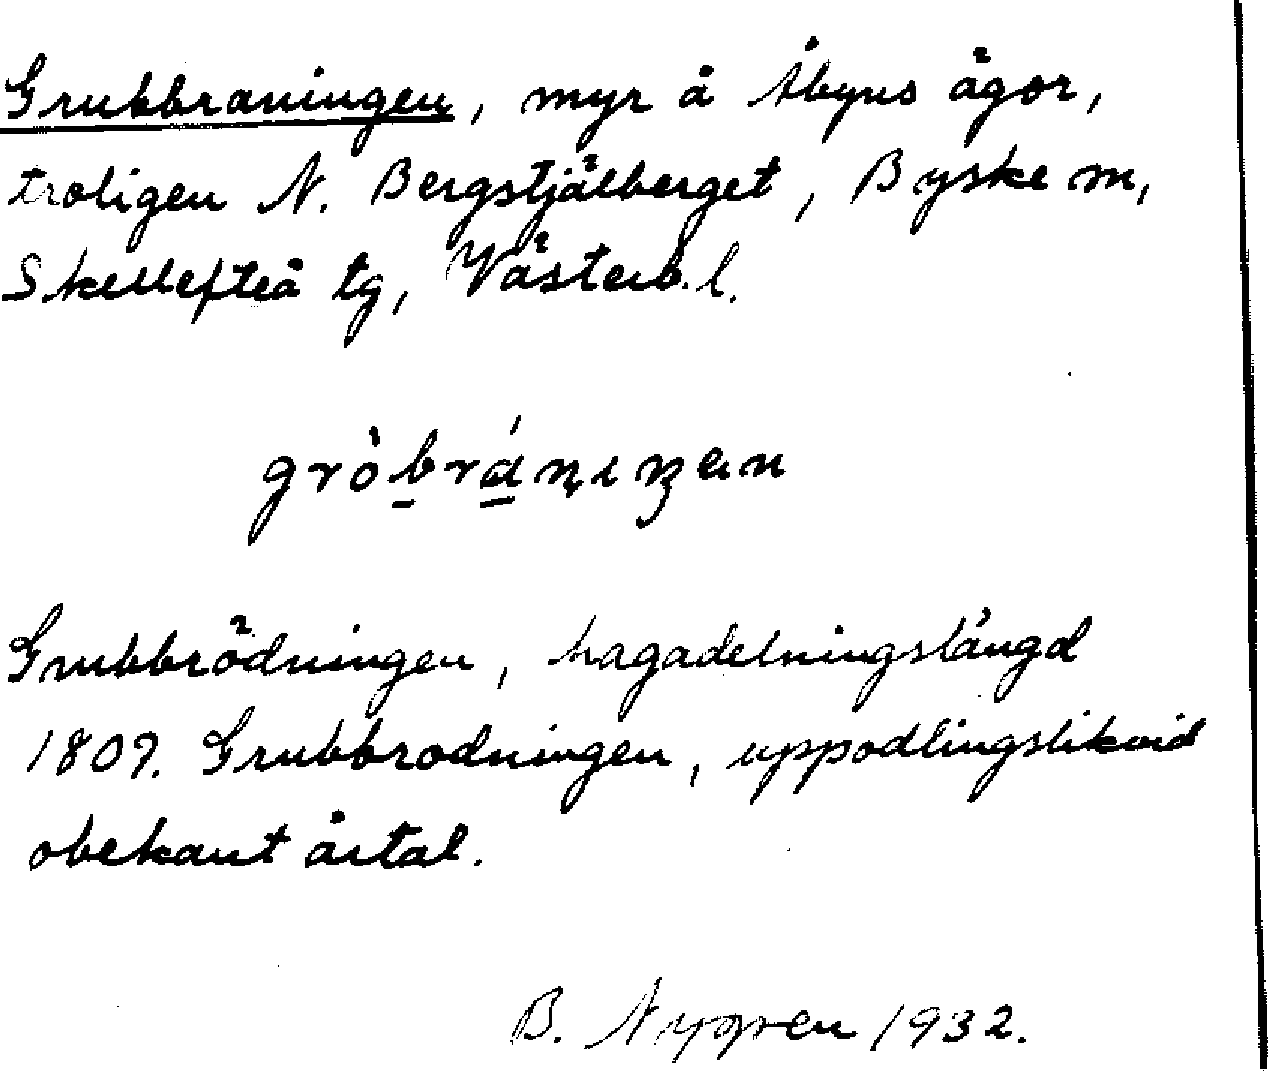 Grubbraningen, myr å Åbyns ägor,
troligen N. Bergstjälberget, Byske sn,
Skellefteå tg, Västerb. l.
gròbráni̢ŋen
Grubbrödningen, hagadelningslängd
1809. Grubbrodningen, uppodlingslikvid
obekant årtal.
B. Nygren 1932.